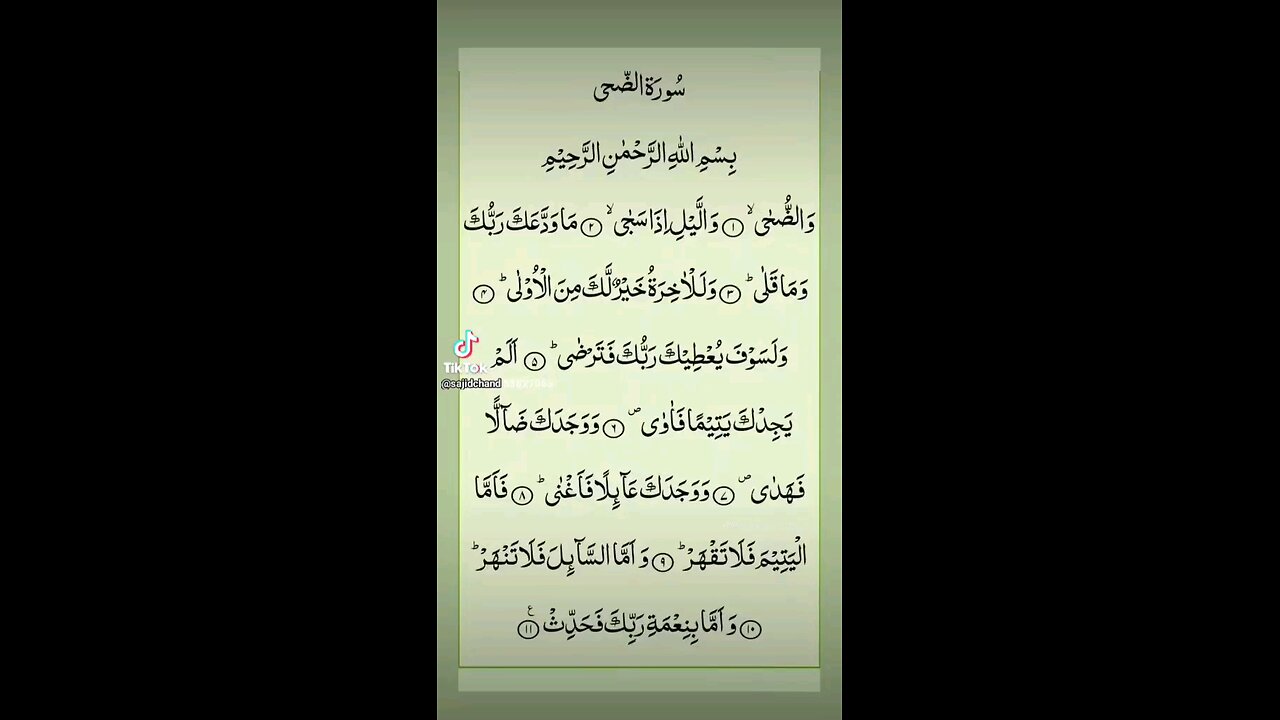 سُورَةُ الضُّحٰی
بِسْمِ اللّٰهِ الرَّحْمٰنِ الرَّحِیْمِ
وَ الضُّحٰیۙ ۝۱ وَ الَّیْلِ اِذَا سَجٰیۙ ۝۲ مَا وَدَّعَكَ رَبُّكَ
وَ مَا قَلٰیؕ ۝۳ وَ لَلْاٰخِرَةُ خَیْرٌ لَّكَ مِنَ الْاُوْلٰیؕ ۝۴
وَ لَسَوْفَ یُعْطِیْكَ رَبُّكَ فَتَرْضٰیؕ ۝۵ اَلَمْ
یَجِدْكَ یَتِیْمًا فَاٰوٰی۪ ۝۶ وَ وَجَدَكَ ضَآلًّا
فَهَدٰی۪ ۝۷ وَ وَجَدَكَ عَآىِٕلًا فَاَغْنٰیؕ ۝۸ فَاَمَّا
الْیَتِیْمَ فَلَا تَقْهَرْؕ ۝۹ وَ اَمَّا السَّآىِٕلَ فَلَا تَنْهَرْؕ
۝۱۰ وَ اَمَّا بِنِعْمَةِ رَبِّكَ فَحَدِّثْ ۝۱۱ ع
TikTok
@sajidchand